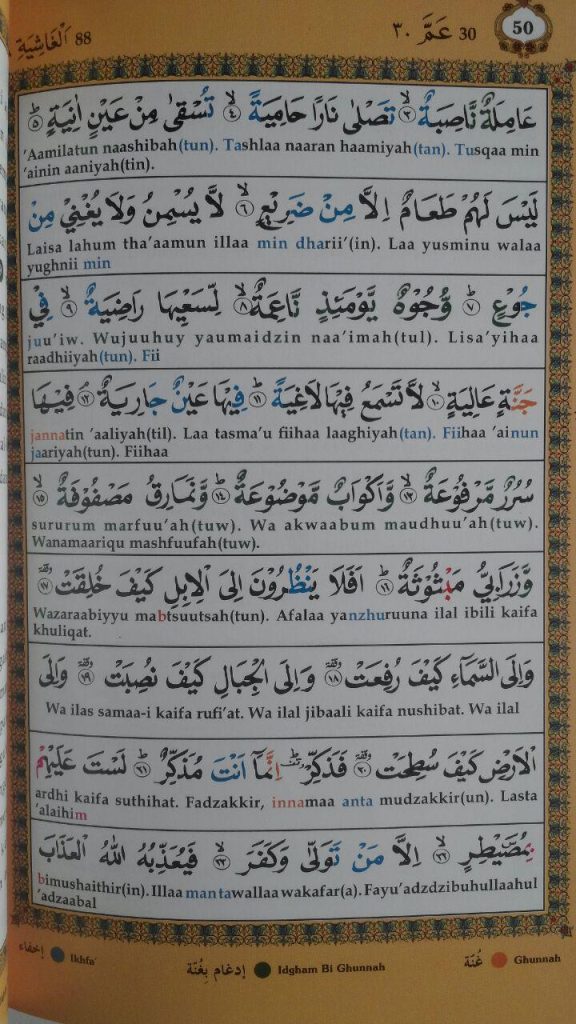 88 اَلْغَاشِيَةِ
30 عَمَّ ٣٠
50
عَامِلَةٌ نَّاصِبَةٌ ۙ ٣ تَصْلٰى نَارًا حَامِيَةً ۙ ٤ تُسْقٰى مِنْ عَيْنٍ اٰنِيَةٍ ۗ ٥
'Aamilatun naashibah(tun). Tashlaa naaran haamiyah(tan). Tusqaa min
'ainin aaniyah(tin).
لَيْسَ لَهُمْ طَعَامٌ اِلَّا مِنْ ضَرِيْعٍ ۙ ٦ لَّا يُسْمِنُ وَلَا يُغْنِيْ مِنْ
Laisa lahum tha'aamun illaa min dharii'(in). Laa yusminu walaa
yughnii min
جُوْعٍ ۗ ٧ وُجُوْهٌ يَّوْمَئِذٍ نَّاعِمَةٌ ۙ ٨ لِّسَعْيِهَا رَاضِيَةٌ ۙ ٩ فِيْ
juu'iw. Wujuuhuy yaumaidzin naa'imah(tul). Lisa'yihaa
raadhiiyah(tun). Fii
جَنَّةٍ عَالِيَةٍ ۙ ١٠ لَّا تَسْمَعُ فِيْهَا لَاغِيَةً ۗ ١١ فِيْهَا عَيْنٌ جَارِيَةٌ ۘ ١٢ فِيْهَا
jannatin 'aaliyah(til). Laa tasma'u fiihaa laaghiyah(tan). Fiihaa 'ainun
jaariyah(tun). Fiihaa
سُرُرٌ مَّرْفُوْعَةٌ ۙ ١٣ وَّاَكْوَابٌ مَّوْضُوْعَةٌ ۙ ١٤ وَّنَمَارِقُ مَصْفُوْفَةٌ ۙ ١٥
sururum marfuu'ah(tuw). Wa akwaabum maudhuu'ah(tuw).
Wanamaariqu mashfuufah(tuw).
وَّزَرَابِيُّ مَبْثُوْثَةٌ ۗ ١٦ اَفَلَا يَنْظُرُوْنَ اِلَى الْاِبِلِ كَيْفَ خُلِقَتْ ۗ ١٧
Wazaraabiyyu mabtsuutsah(tun). Afalaa yanzhuruuna ilal ibili kaifa
khuliqat.
وَاِلَى السَّمَاۤءِ كَيْفَ رُفِعَتْ ۗ ١٨ وَاِلَى الْجِبَالِ كَيْفَ نُصِبَتْ ۗ ١٩ وَاِلَى
Wa ilas samaa-i kaifa rufi'at. Wa ilal jibaali kaifa nushibat. Wa ilal
الْاَرْضِ كَيْفَ سُطِحَتْ ۗ ٢٠ فَذَكِّرْ ۗ اِنَّمَآ اَنْتَ مُذَكِّرٌ ۗ ٢١ لَسْتَ عَلَيْهِمْ
ardhi kaifa suthihat. Fadzakkir, innamaa anta mudzakkir(un). Lasta
'alaihim
بِمُصَۣيْطِرٍ ۙ ٢٢ اِلَّا مَنْ تَوَلّٰى وَكَفَرَ ۙ ٢٣ فَيُعَذِّبُهُ اللّٰهُ الْعَذَابَ
bimushaithir(in). Illaa man tawallaa wakafar(a). Fayu'adzdzibuhullaahul
'adzaabal
إخفاء Ikhfa'
إدغام بِغُنَّة Idgham Bi Ghunnah
غُنَّة Ghunnah